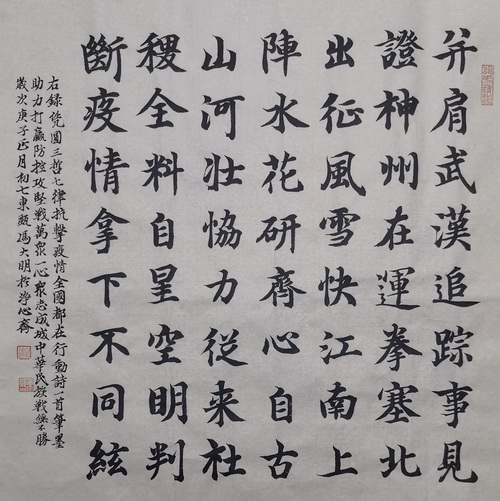 并肩武漢追踪事見
證神州在運拳塞北
出征風雪快江南上
陣水花研齊心自古
山河壯協力從來社
稷全料自星空明判
斷疫情拿下不同絃
右録三哲七律抗擊疫情全國都在行動詩一首筆墨
助力打贏防控攻堅戰萬衆一心衆志成城中華民族戰無不勝
歲次庚子正月初七東甌馮大明於淨心齋